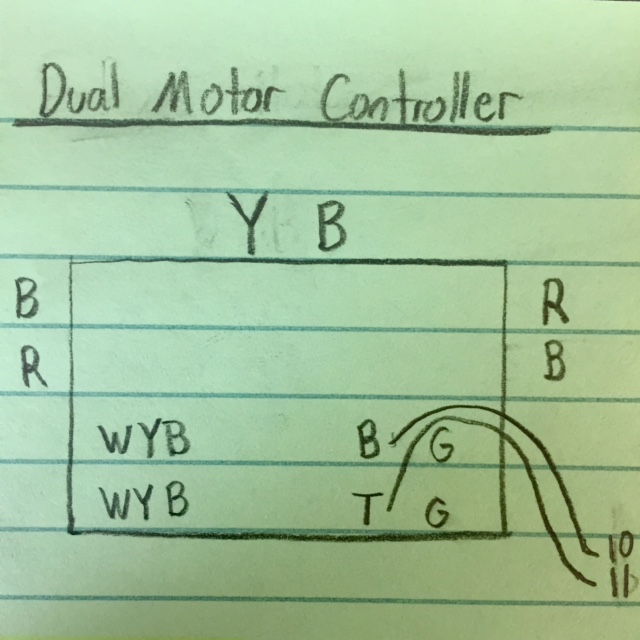 Dual Motor Controller
Y B
B R
R B
WYB B G
WYB T G
10
11